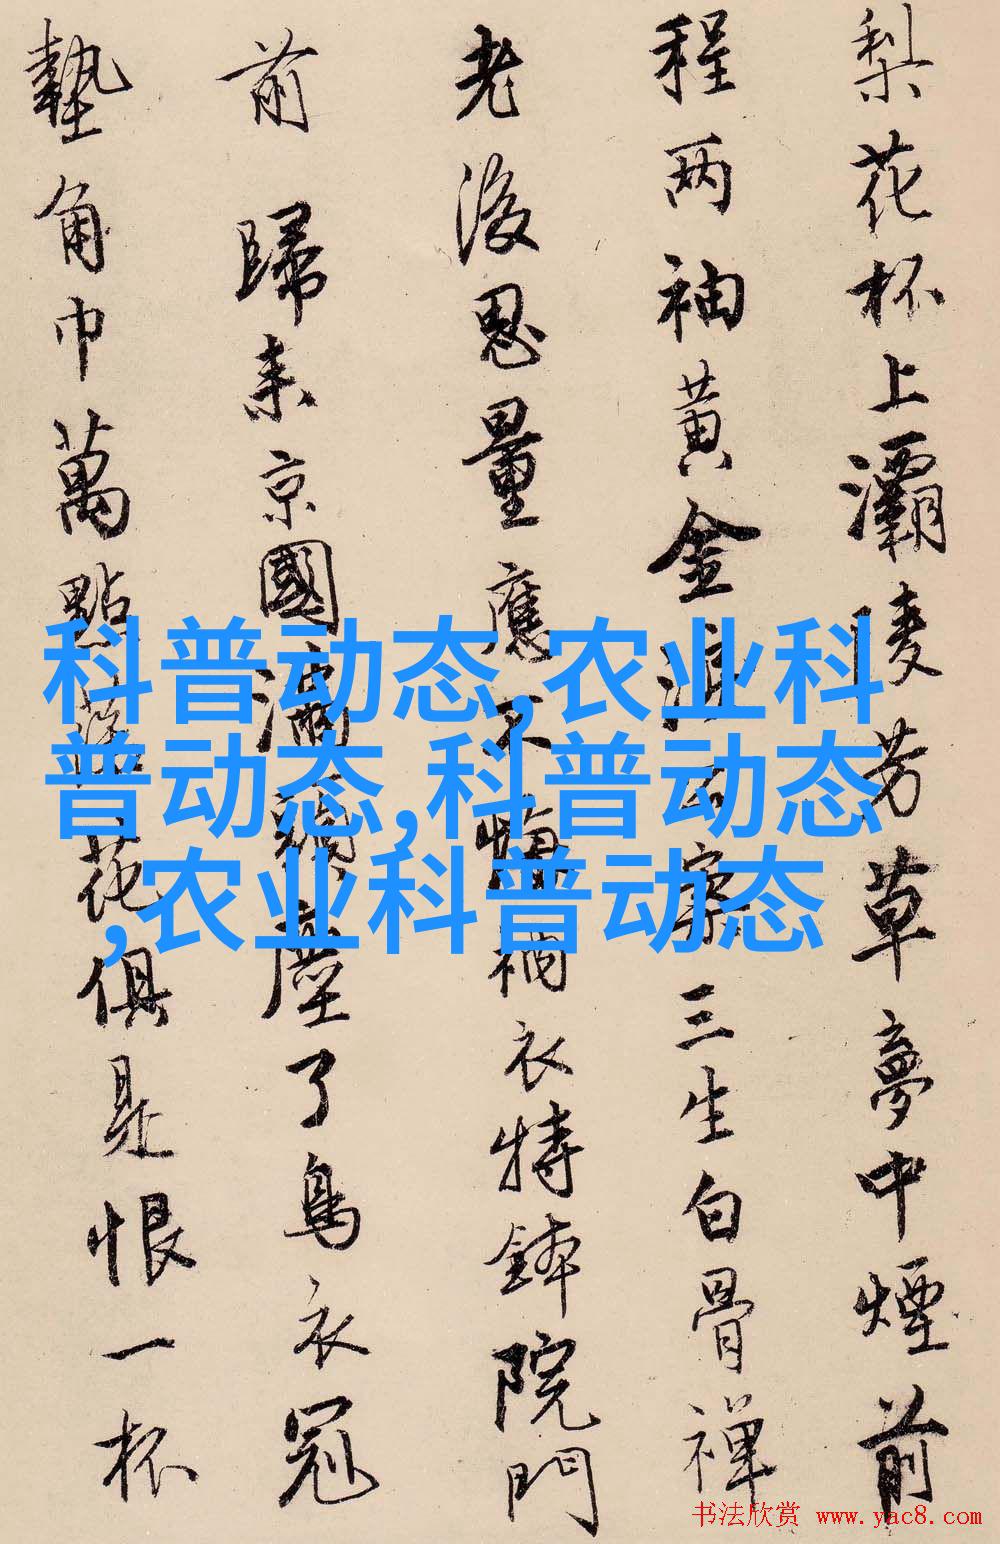 梨花杯上灞陵芳草夢中煙前
程两袖黄金淚公案三生白骨禅
老後思量應不悔衲衣持鉢院門
前 歸来京國滿頭塵了烏衣冠
墊角巾萬點落花俱是恨一杯
科普动态,农业科
普动态,科普动态
,农业科普动态
书法欣赏 www.yac8.com